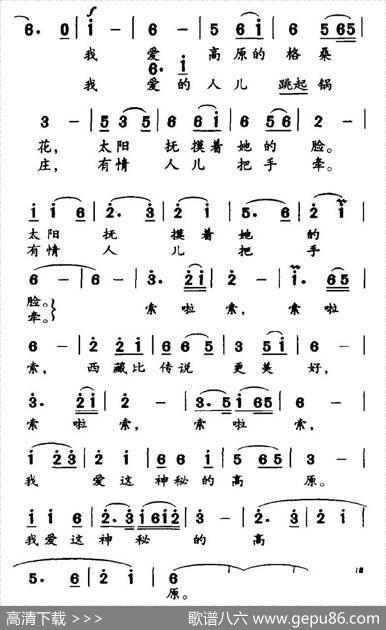 6. 0 | i - | 6 - | 5 6 i | 6 5 6 5 |
我 爱 高原的 格桑
6. i
我 爱的 人儿 跳起 锅
3 - | 5 3 5 | 6 i i | 6 5 6 | 2 - |
花, 太阳 抚摸着她的 脸。
庄, 有情 人儿 把手 牵。
i i 6 | 2. 3 | 2 i | 5. 6 | 2 i |
太阳 抚 摸着 她 的
有情 人 儿 把 手
6 - | 6 - | 3. 2 i | 2 - | i. 6 5 |
脸。 索 啦 索, 索 啦
牵。
6 - | 2 2 i | 6 6 5 | 3 5 i | 6 - |
索, 西藏比 传说 更美 好,
3. 2 i | 2 - | 3. 5 i 6 5 | 6 - |
索 啦 索, 索 啦 索,
i 2 3 | 2 2 i | 6 6 i | 5 5 6 | 3 - |
我 爱这 神秘的 高 原。
i i 6 | 2. 3 i 6 i 2 | 3 - | 2. 3 | 2 i |
我爱这 神 秘 的 高
5. 6 | 2 i | 6
原。
高清下载 >>>
歌谱八六 www.gepu86.com